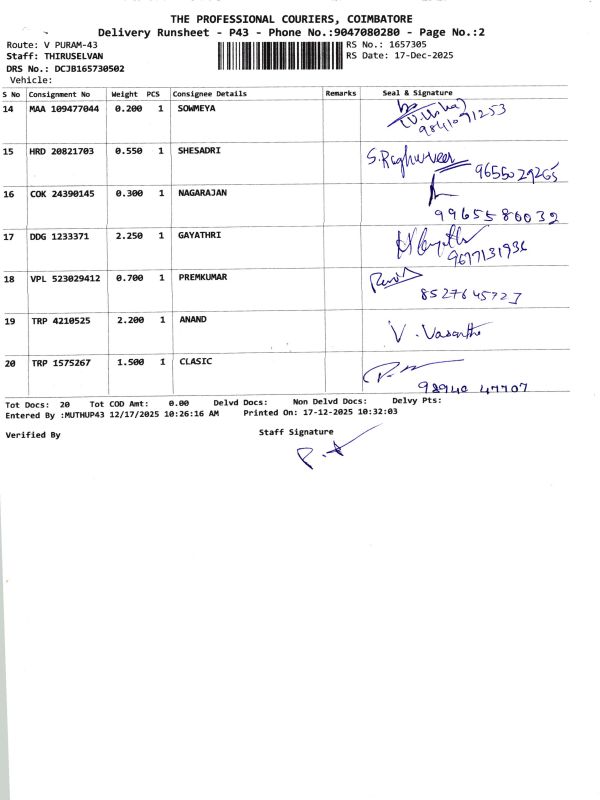 THE PROFESSIONAL COURIERS, COIMBATORE
Delivery Runsheet - P43 - Phone No.:9047080280 - Page No.:2
Route: V PURAM-43 RS No.: 1657305
Staff: THIRUSELVAN RS Date: 17-Dec-2025
DRS No.: DCJB165730502
Vehicle:
S No Consignment No Weight PCS Consignee Details Remarks Seal & Signature
14 MAA 109477044 0.200 1 SOWMEYA
(V.Usha)
9841071253
15 HRD 20821703 0.550 1 SHESADRI S.Raghuveer
9655029265
16 COK 24390145 0.300 1 NAGARAJAN
9965586032
17 DDG 1233371 2.250 1 GAYATHRI
9677131936
18 VPL 523029412 0.700 1 PREMKUMAR
8527645727
19 TRP 4210525 2.200 1 ANAND V. Vasantha
20 TRP 1575267 1.500 1 CLASIC
98940 47707
Tot Docs: 20 Tot COD Amt: 0.00 Delvd Docs: Non Delvd Docs: Delvy Pts:
Entered By :MUTHUP43 12/17/2025 10:26:16 AM Printed On: 17-12-2025 10:32:03
Verified By Staff Signature